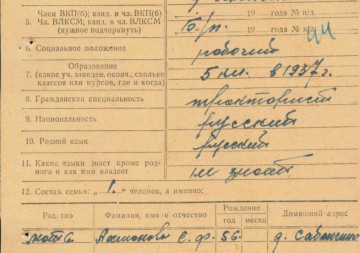 Член ВКП(б), канд. в чл. ВКП(б)
5. Чл. ВЛКСМ, канд. в чл. ВЛКСМ
(нужное подчеркнуть)
19 года №
б/п. 19 года № п/б
6. Социальное положение рабочий
Образование
7. (какое уч. заведен. оконч., сколько
классов или курсов, где и когда)
5 кл. в 1937 г.
8. Гражданская специальность тракторист
9. Национальность русский
10. Родной язык русский
11. Какие языки знает кроме род-
ного и как ими владеет
не знает
12. Состав семьи: „ 1. “ человек, а именно:
Родство Фамилия, имя и отчество Рождение Домашний адрес
год месяц
мать Е. Ф. 56. д.